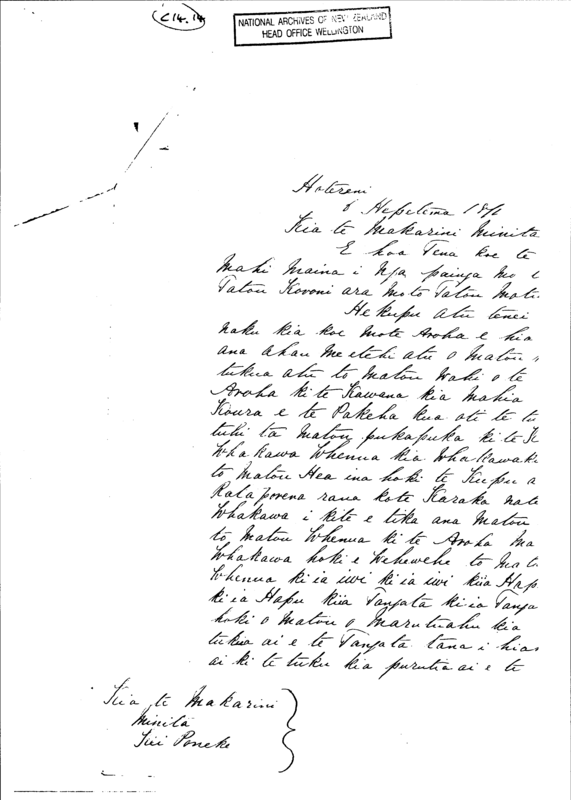 C14.14
NATIONAL ARCHIVES OF NEW ZEALAND
HEAD OFFICE WELLINGTON
Hotereni
6 Hepetema 18
Kia te Makarini Minita
E hoa Tena koe te
Mahi Maina i Nga painga mo
Tatou Koroni ara moto Tatou Motu
He kupu atu tenei
naku kia koe mote Aroha e hia
ana ahau me etehi atu o Matou
tukua atu to Matou Wahi o te
Aroha ki te Kawana kia Mahia
Koura e te Pakeha kua oti te tu
tuhi ta Matou pukapuka ki te K
Whakawa Whenua kia Whakawaki
to Matou Hea ina hoki te Kupu a
Rata Porena raua kote Karaka nate
Whakawa i kite e tika ana Matou
to Matou Whenua ki te Aroha Ma
Whakawa hoki e Wehewehe to Mat
Whenua ki ia iwi ki ia iwi kiia Hap
ki ia Hapu kiia Tangata ki ia Tanga
hoki o Matou o Marutuahu kia
tukua ai e te Tangata tana i hia
ai ki te tuku kia puritia ai e te
Kia te Makarini
Minita
Kei Poneke